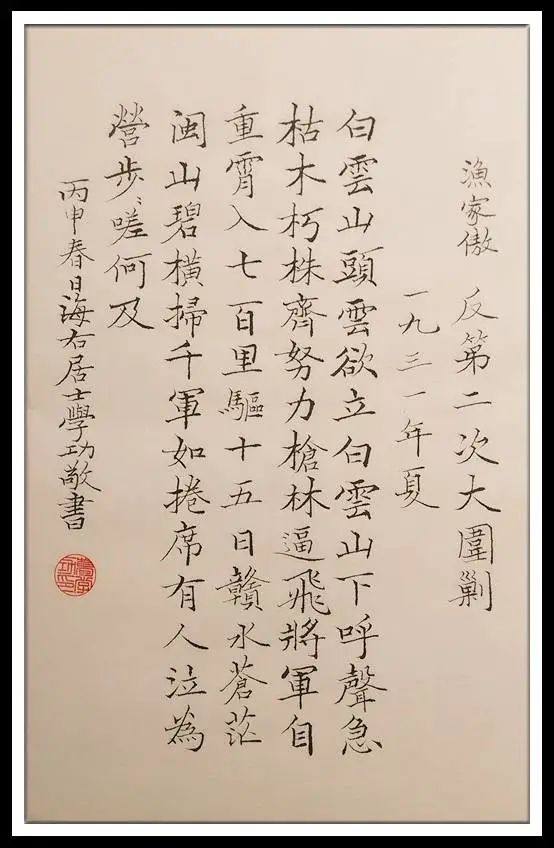 漁家傲 反第二次大圍剿
一九三一年夏
白雲山頭雲欲立白雲山下呼聲急
枯木朽株齊努力槍林逼飛將軍自
重霄入七百里驅十五日贛水蒼茫
闽山碧橫掃千軍如捲席有人泣為
營步〻嗟何及
丙申春日海右居士學功敬書